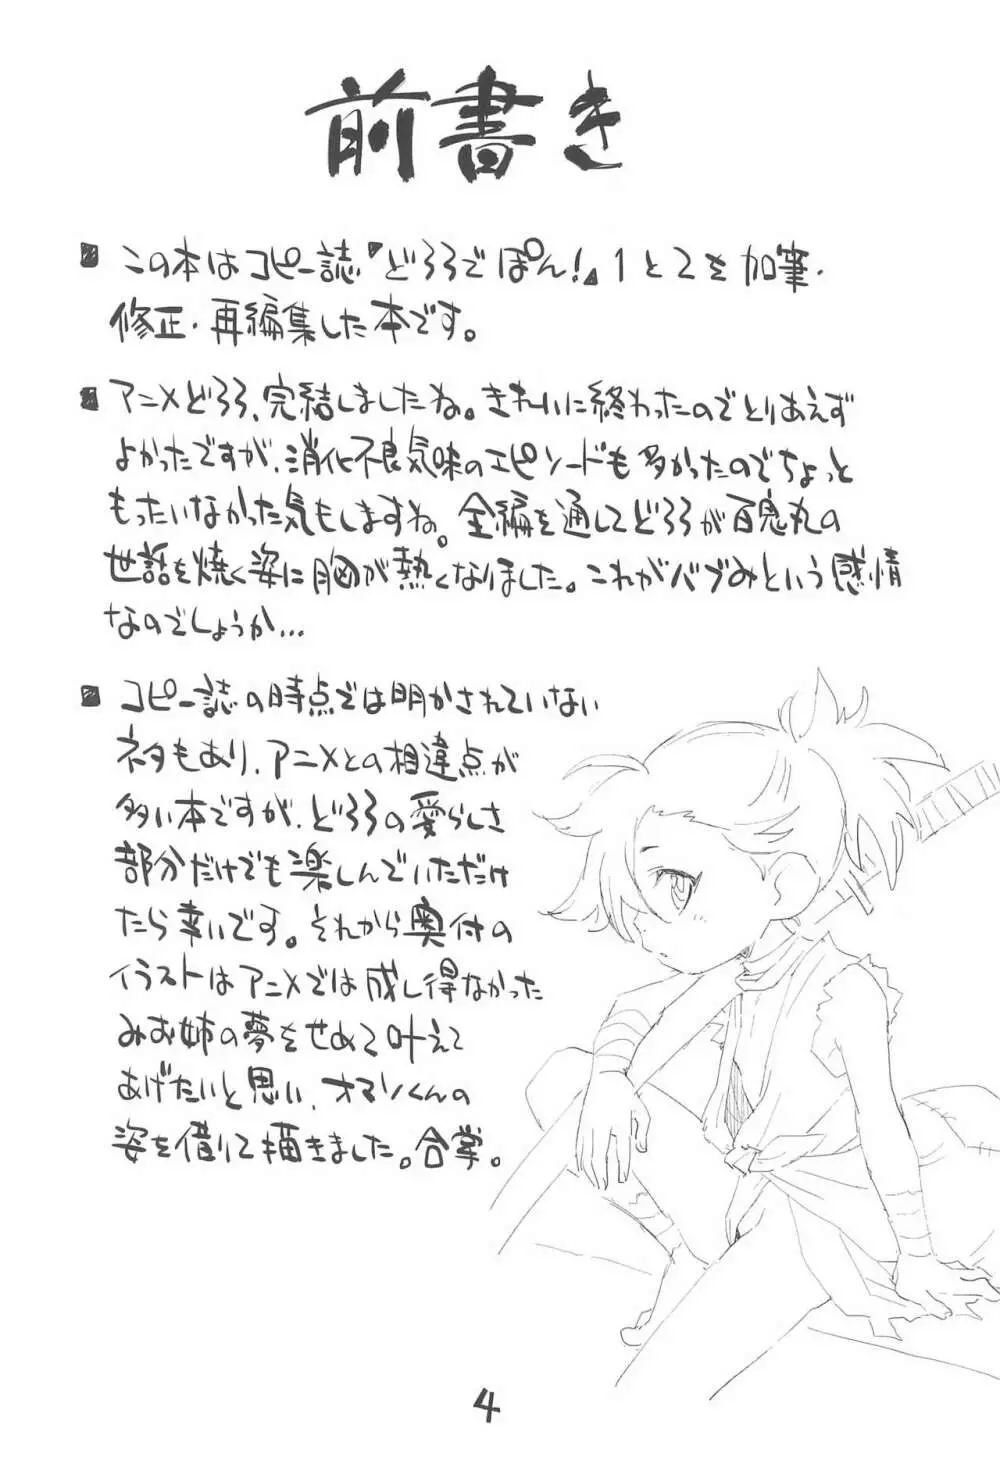 前書き
■ この本はコピー誌『どろろでぽん!』1と2を加筆・
修正・再編集した本です。
■ アニメどろろ、完結しましたね。きれいに終わったのでとりあえず
よかったですが、消化不良気味のエピソードも多かったのでちょっと
もったいなかった気もしますね。全編を通してどろろが百鬼丸の
世話を焼く姿に胸が熱くなりました。これがバブみという感情
なのでしょうか…
■ コピー誌の時点では明かされていない
ネタもあり、アニメとの相違点が
多い本ですが、どろろの愛らしさ
部分だけでも楽しんでいただけ
たら幸いです。それから奥付の
イラストはアニメでは成し得なかった
みお姉の夢をせめて叶えて
あげたいと思い、オマソくんの
姿を借りて描きました。合掌。
4